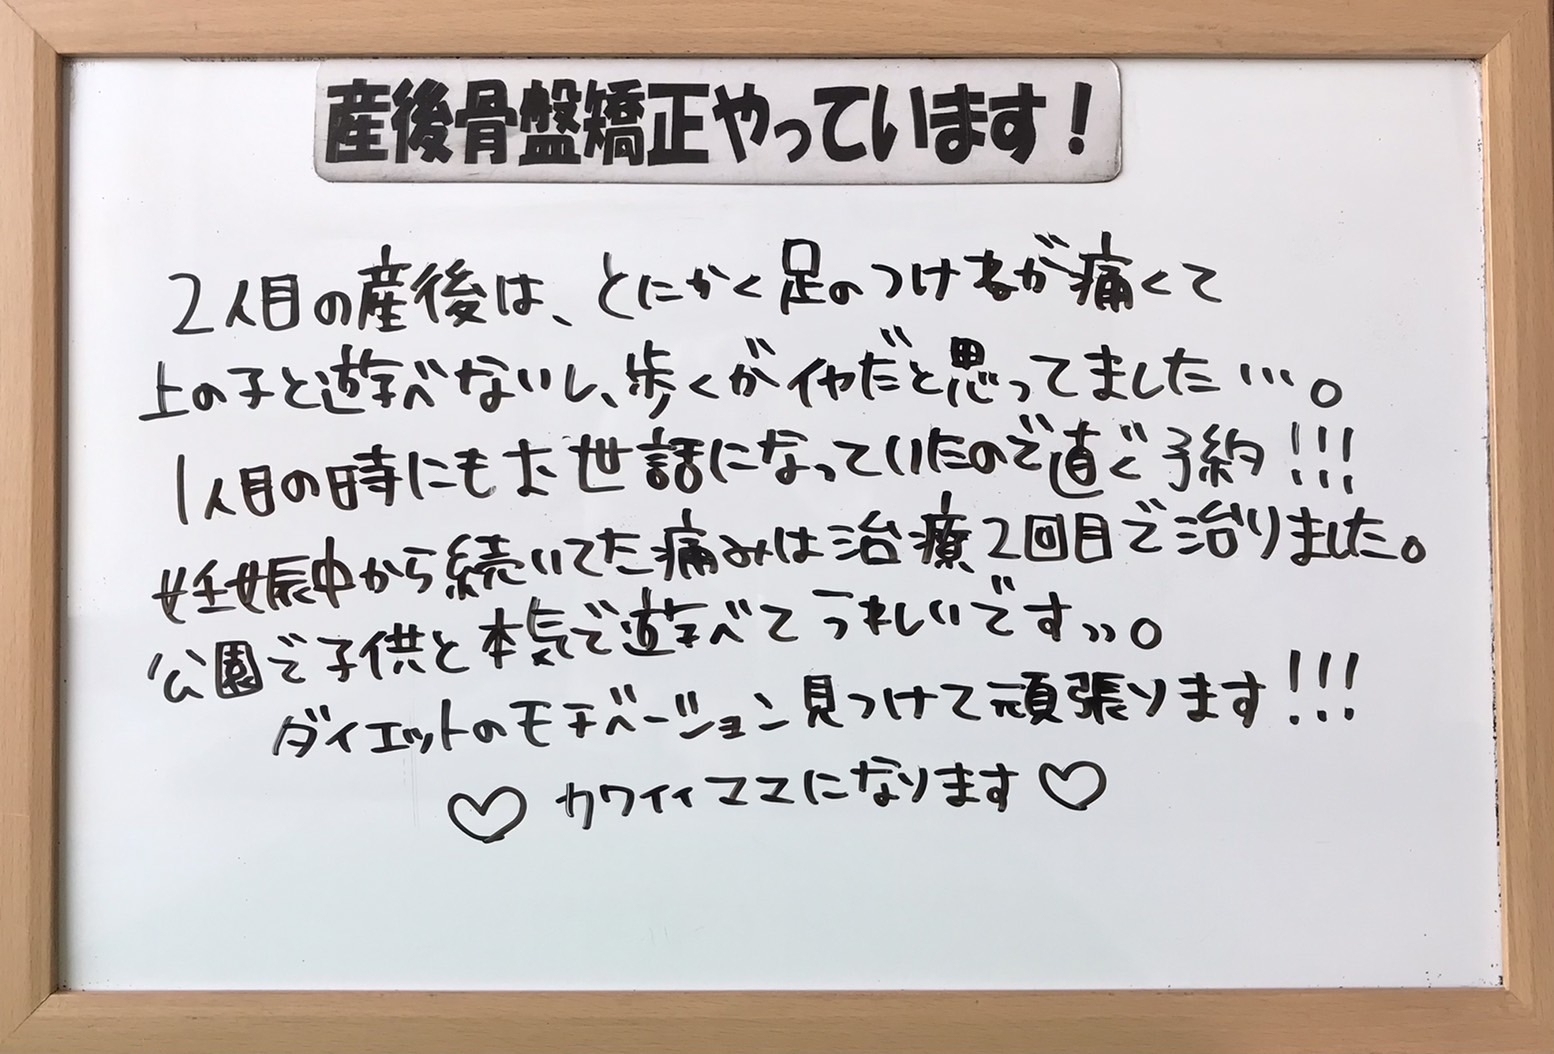 産後骨盤矯正やっています!
2人目の産後は、とにかく足のつけ根が痛くて
上の子と遊べないし、歩くがイヤだと思ってました…。
1人目の時にもお世話になっていたので直ぐ予約!!!
妊娠中から続いてた痛みは治療2回目で治りました。
公園で子供と本気で遊べてうれしいです››。
ダイエットのモチベーション見つけて頑張ります!!!
♡ カワイィママになります ♡